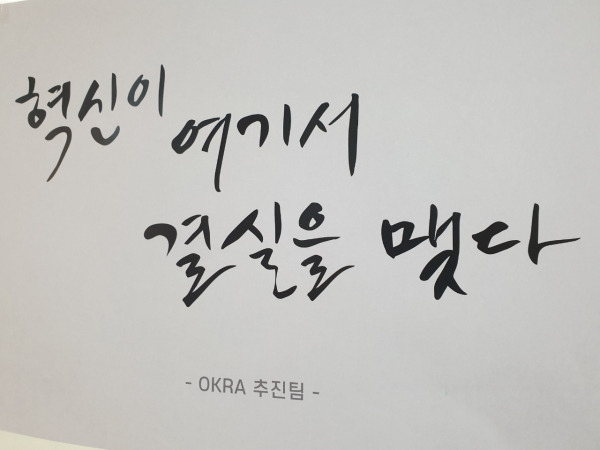 혁신이
여기서
결실을 맺다
- OKRA 추진팀 -